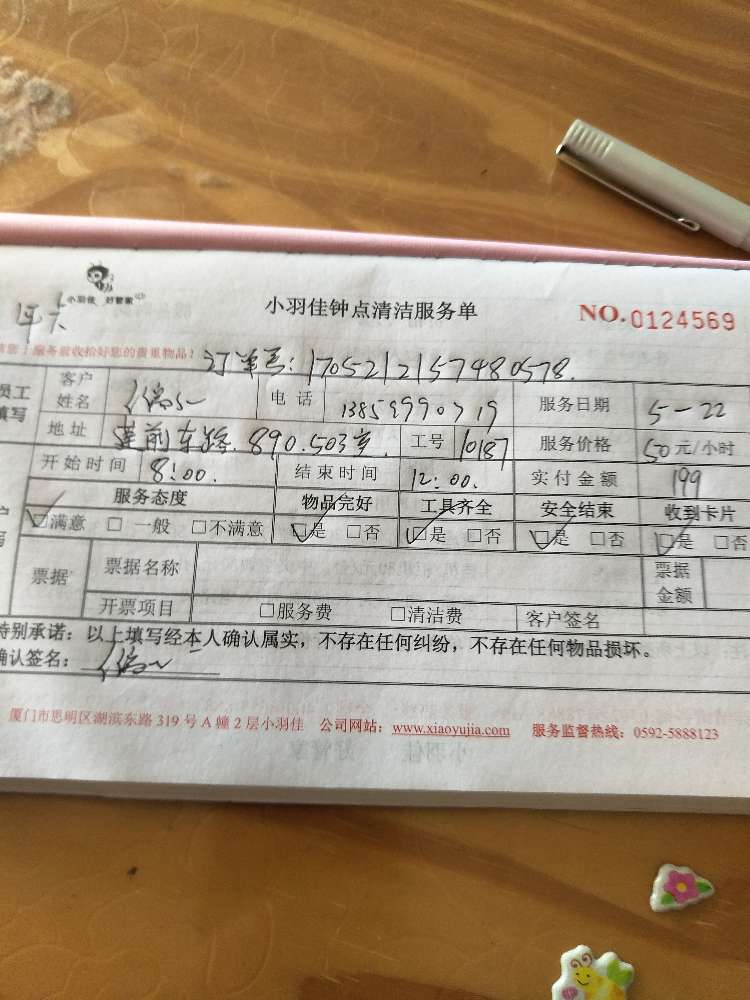 小羽佳 好管家
年卡
小羽佳钟点清洁服务单
NO.0124569
请您:服务前收拾好您的贵重物品!
订单号:1705212157480578.
员工填写
客户姓名
电话 13859990719
服务日期 5-22
地址 莲前东路.890.503室.
工号 10187
服务价格 50元/小时
开始时间 8:00.
结束时间 12:00.
实付金额 199
服务态度 物品完好 工具齐全 安全结束 收到卡片
☑满意 □一般 □不满意 ☑是 □否 ☑是 □否 ☑是 □否 ☑是 □否
票据 票据名称 票据金额
开票项目 □服务费 □清洁费 客户签名
特别承诺:以上填写经本人确认属实,不存在任何纠纷,不存在任何物品损坏。
确认签名:
厦门市思明区湖滨东路319号A幢2层小羽佳 公司网站:www.xiaoyujia.com 服务监督热线:0592-5888123